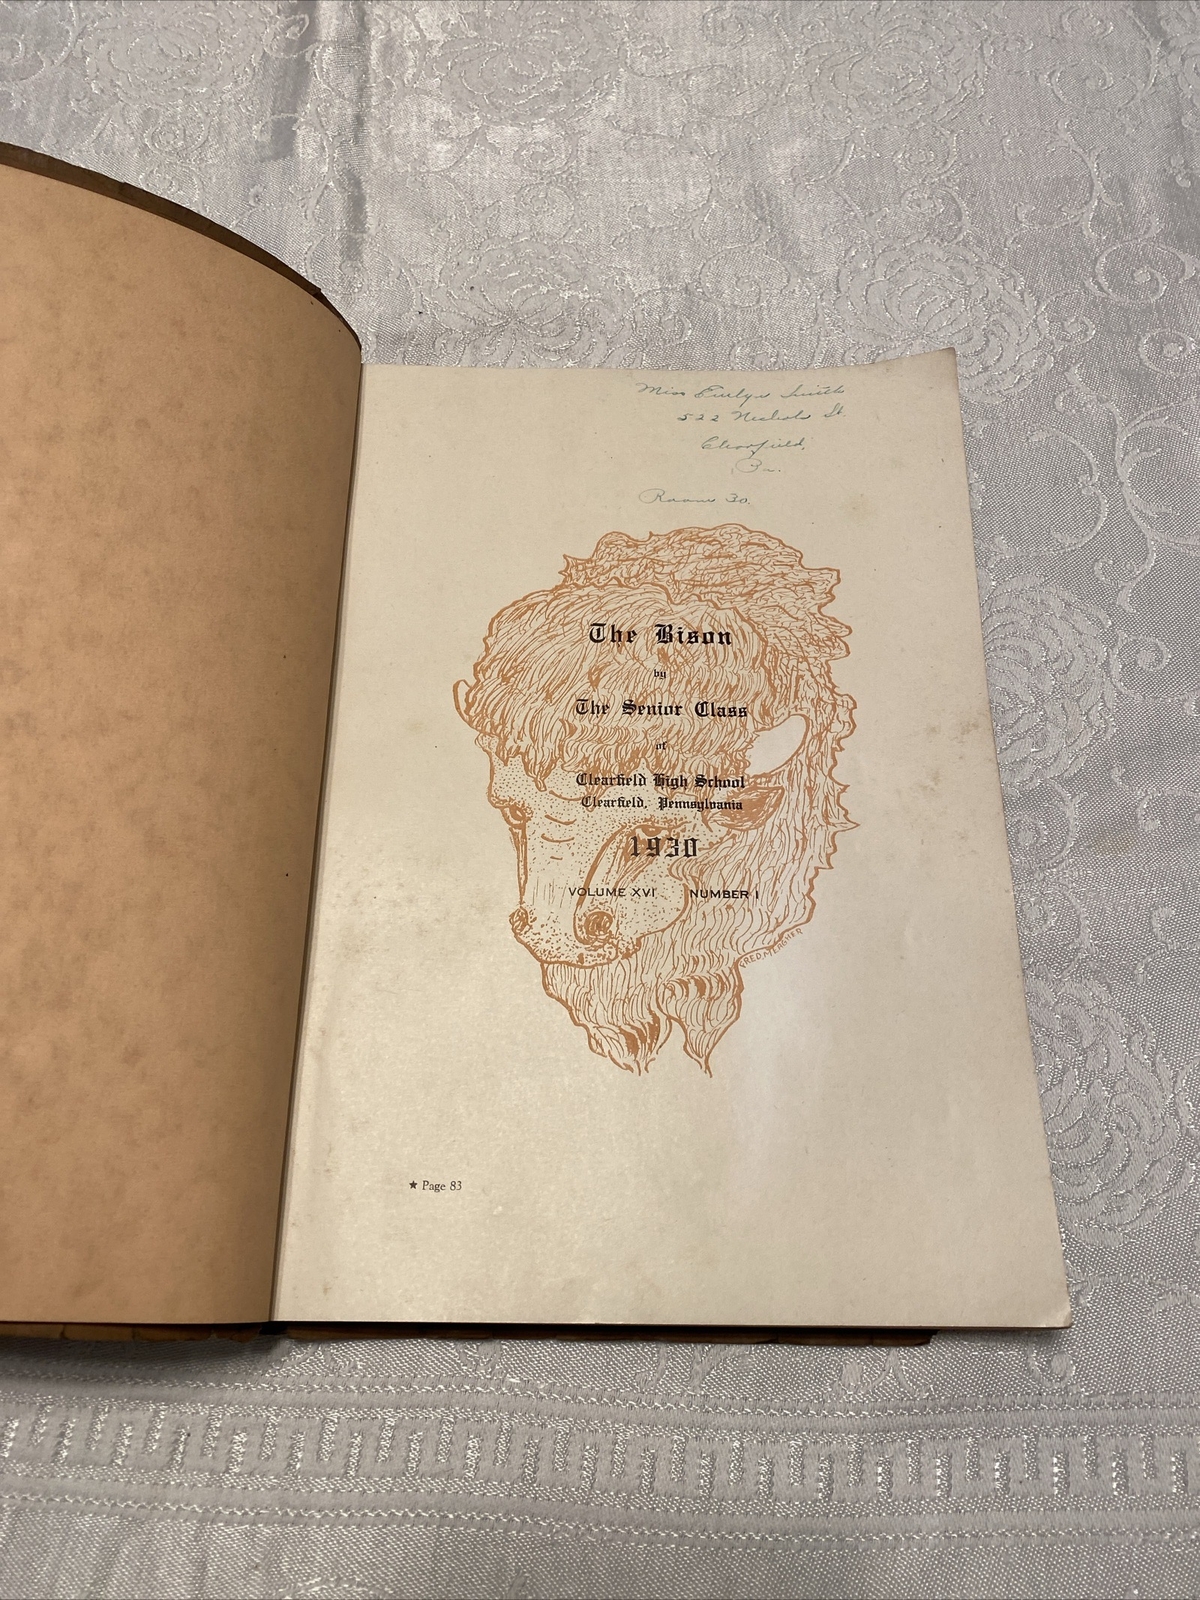 Miss Evelyn Smith
522 Nichols St.
Clearfield,
Pa.
Room 30.
The Bison
by
The Senior Class
of
Clearfield High School
Clearfield, Pennsylvania
1930
VOLUME XVI NUMBER I
FRED MEAGHER
★ Page 83